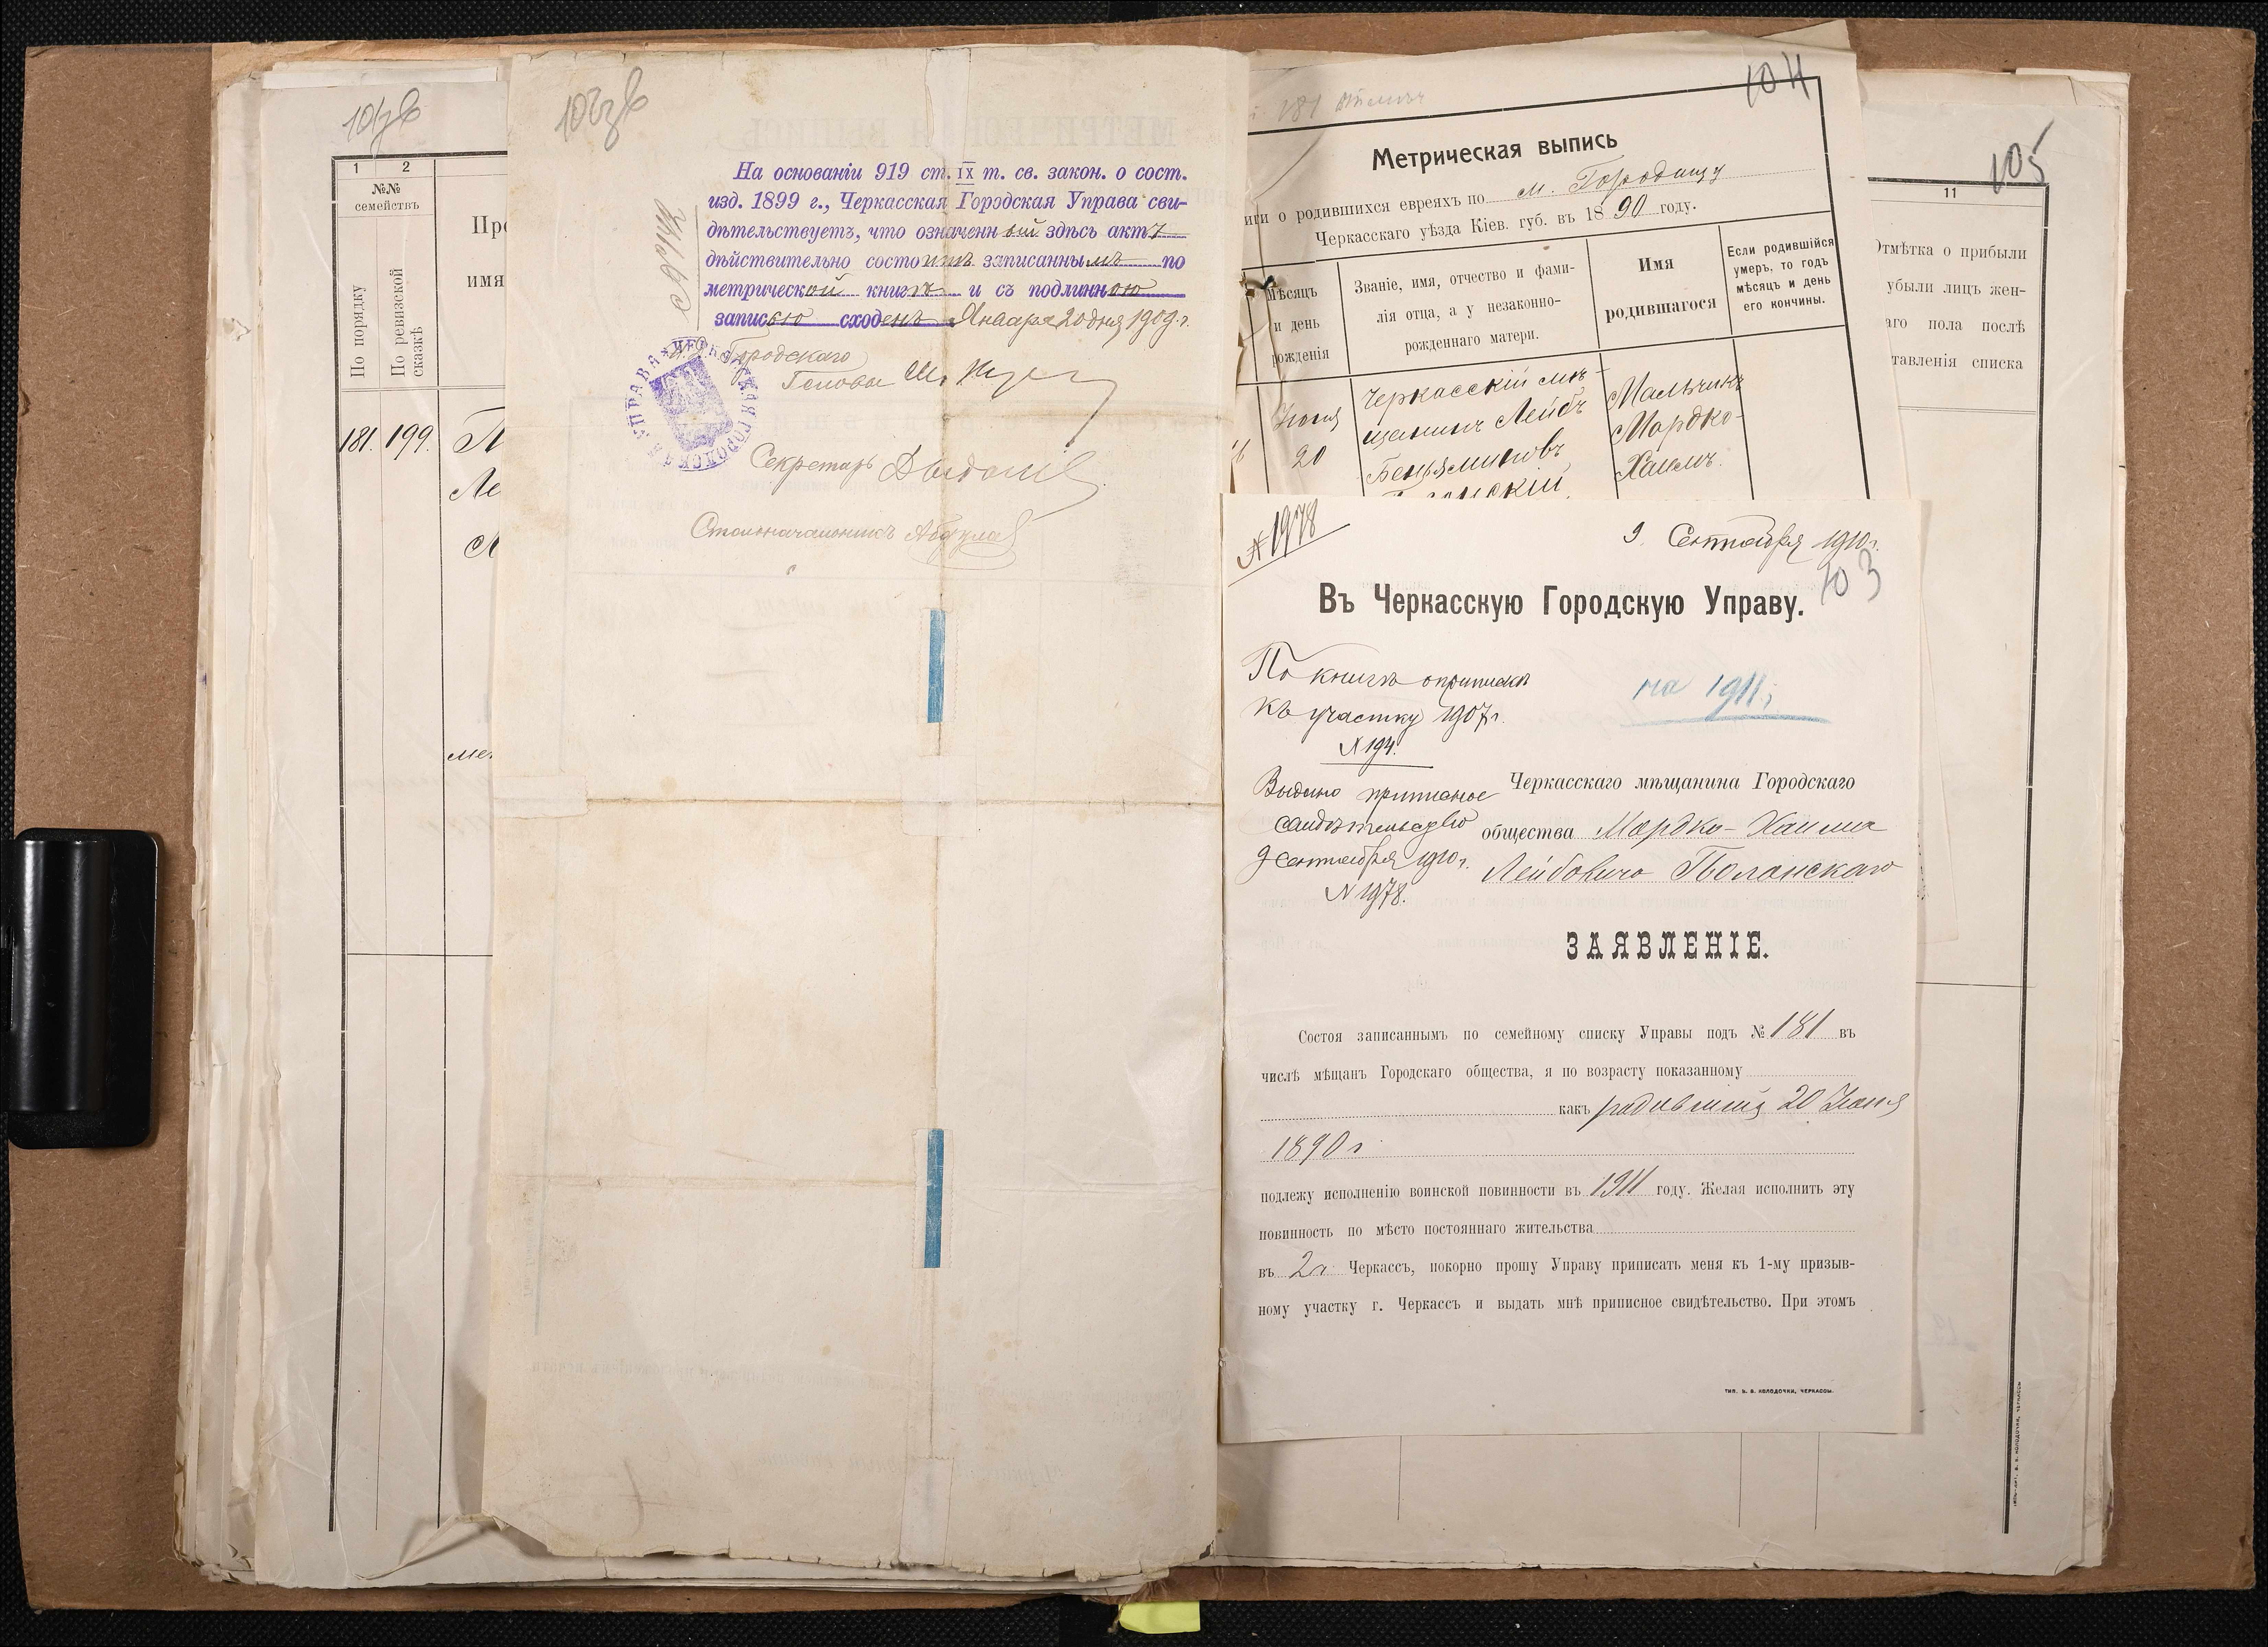 1 2
№№
семействъ
По порядку
По ревизской
сказкѣ
имя
181. 199.
Ле
На основаніи 919 ст. IX т. св. закон. о сост.
изд. 1899 г., Черкасская Городская Управа сви-
дѣтельствуетъ, что означенный здѣсь актъ
дѣйствительно состоитъ записаннымъ по
метрической книгѣ и съ подлинною
записью сходенъ Января 20 дня 1909 г.
Городского
Головы
ЧЕРКАССКАЯ ГОРОДСКАЯ УПРАВА
Секретарь
Столоначальникъ
104
181
Метрическая выпись
иги о родившихся евреяхъ по м. Городищу
Черкасскаго уѣзда Кіев. губ. въ 1890 году.
Мѣсяцъ
и день
рожденія
Званіе, имя, отчество и фами-
лія отца, а у незаконно-
рожденнаго матери.
Имя
родившагося
Если родившійся
умеръ, то годъ
мѣсяцъ и день
его кончины.
Іюня
20
Черкасскій мѣ-
щанинъ Лейбъ
Беньяминовъ
Мальчикъ
Мордко-
Хаимъ.
105
11
Отмѣтка о прибыли
убыли лицъ жен-
аго пола послѣ
тавленія списка
№ 1978
9 Сентября 1910 г.
103
Въ Черкасскую Городскую Управу.
По книгѣ о припискѣ
къ участку 1907 г.
№ 194.
на 1911 г.
Выдано приписное
свидѣтельство
9 сентября 1910 г.
№ 1978.
Черкасскаго мѣщанина Городскаго
общества Мордко-Хаима
Лейбовича Полонскаго
ЗАЯВЛЕНІЕ.
Состоя записаннымъ по семейному списку Управы подъ № 181 въ
числѣ мѣщанъ Городскаго общества, я по возрасту показанному
какъ родившійся 20 Іюня
1890 г
подлежу исполненію воинской повинности въ 1911 году. Желая исполнить эту
повинность по мѣсто постояннаго жительства
въ г. Черкассъ, покорно прошу Управу приписать меня къ 1-му призыв-
ному участку г. Черкассъ и выдать мнѣ приписное свидѣтельство. При этомъ
ТИП. В. В. КОЛОДОЧКИ, ЧЕРКАССЫ.